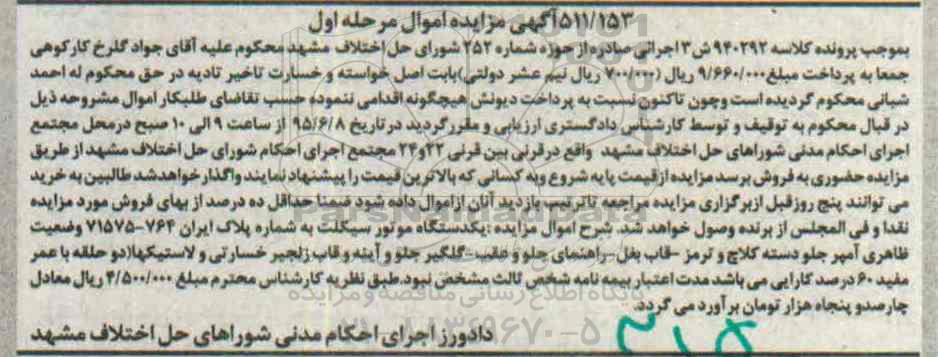 ۵۱۱/۱۵۳آگهی مزایده اموال مرحله اول
بموجب پرونده کلاسه ۹۴۰۲۹۲ش۳ اجرائی صادره از حوزه شماره ۲۵۲ شورای حل اختلاف مشهد محکوم علیه آقای جواد گلرخ کارکوهی
جمعا به پرداخت مبلغ۹/۶۶۰/۰۰۰ ریال (۷۰۰/۰۰۰ ریال نیم عشر دولتی)بابت اصل خواسته و خسارت تاخیر تادیه در حق محکوم له احمد
شبانی محکوم گردیده است وچون تاکنون نسبت به پرداخت دیونش هیچگونه اقدامی ننموده حسب تقاضای طلبکار اموال مشروحه ذیل
در قبال محکوم به توقیف و توسط کارشناس دادگستری ارزیابی و مقررگردید در تاریخ ۹۵/۶/۸ از ساعت ۹ الی ۱۰ صبح درمحل مجتمع
اجرای احکام مدنی شوراهای حل اختلاف مشهد واقع درقرنی بین قرنی ۲۲و۲۴ مجتمع اجرای احکام شورای حل اختلاف مشهد از طریق
مزایده حضوری به فروش برسد مزایده ازقیمت پایه شروع وبه کسانی که بالاترین قیمت را پیشنهاد نمایند واگذار خواهدشد طالبین به خرید
می توانند پنج روزقبل ازبرگزاری مزایده مراجعه تاترتیب بازدید آنان ازاموال داده شود ضمنا حداقل ده درصد از بهای فروش مورد مزایده
نقدا و فی المجلس از برنده وصول خواهد شد. شرح اموال مزایده :یکدستگاه موتور سیکلت به شماره پلاک ایران ۷۶۴-۷۱۵۷۵ وضعیت
ظاهری آمپر جلو دسته کلاچ و ترمز -قاب بغل-راهنمای جلو و عقب-گلگیر جلو و آینه و قاب زنجیر خسارتی و لاستیکها(دو حلقه با عمر
مفید ۶۰ درصد کارایی می باشد مدت اعتبار بیمه نامه شخص ثالث مشخص نبود.طبق نظریه کارشناس محترم مبلغ ۴/۵۰۰/۰۰۰ ریال معادل
چارصدو پنجاه هزار تومان برآورد می گردد.
دادورز اجرای احکام مدنی شوراهای حل اختلاف مشهد
ParsNamadData
پایگاه اطلاع رسانی مناقصه و مزایده